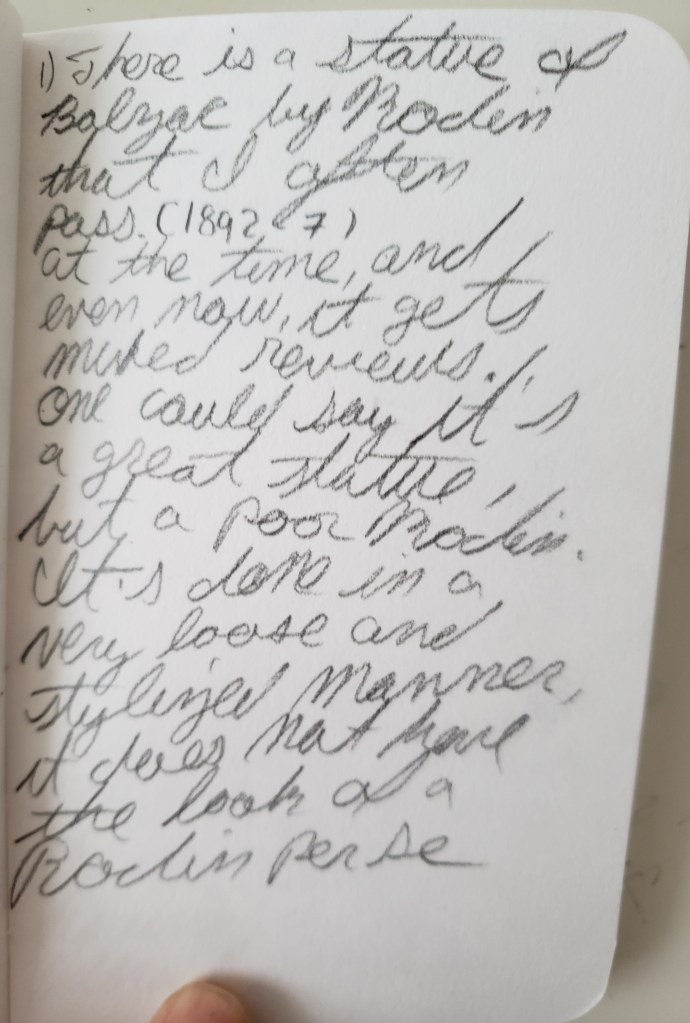 1) There is a statue of
Balzac by Rodin
that I often
pass. (1892-7)
at the time, and
even now, it gets
mixed reviews.
one could say it's
a great statue,
but a poor Rodin.
It's done in a
very loose and
stylized manner,
it does not have
the look of a
Rodin per se